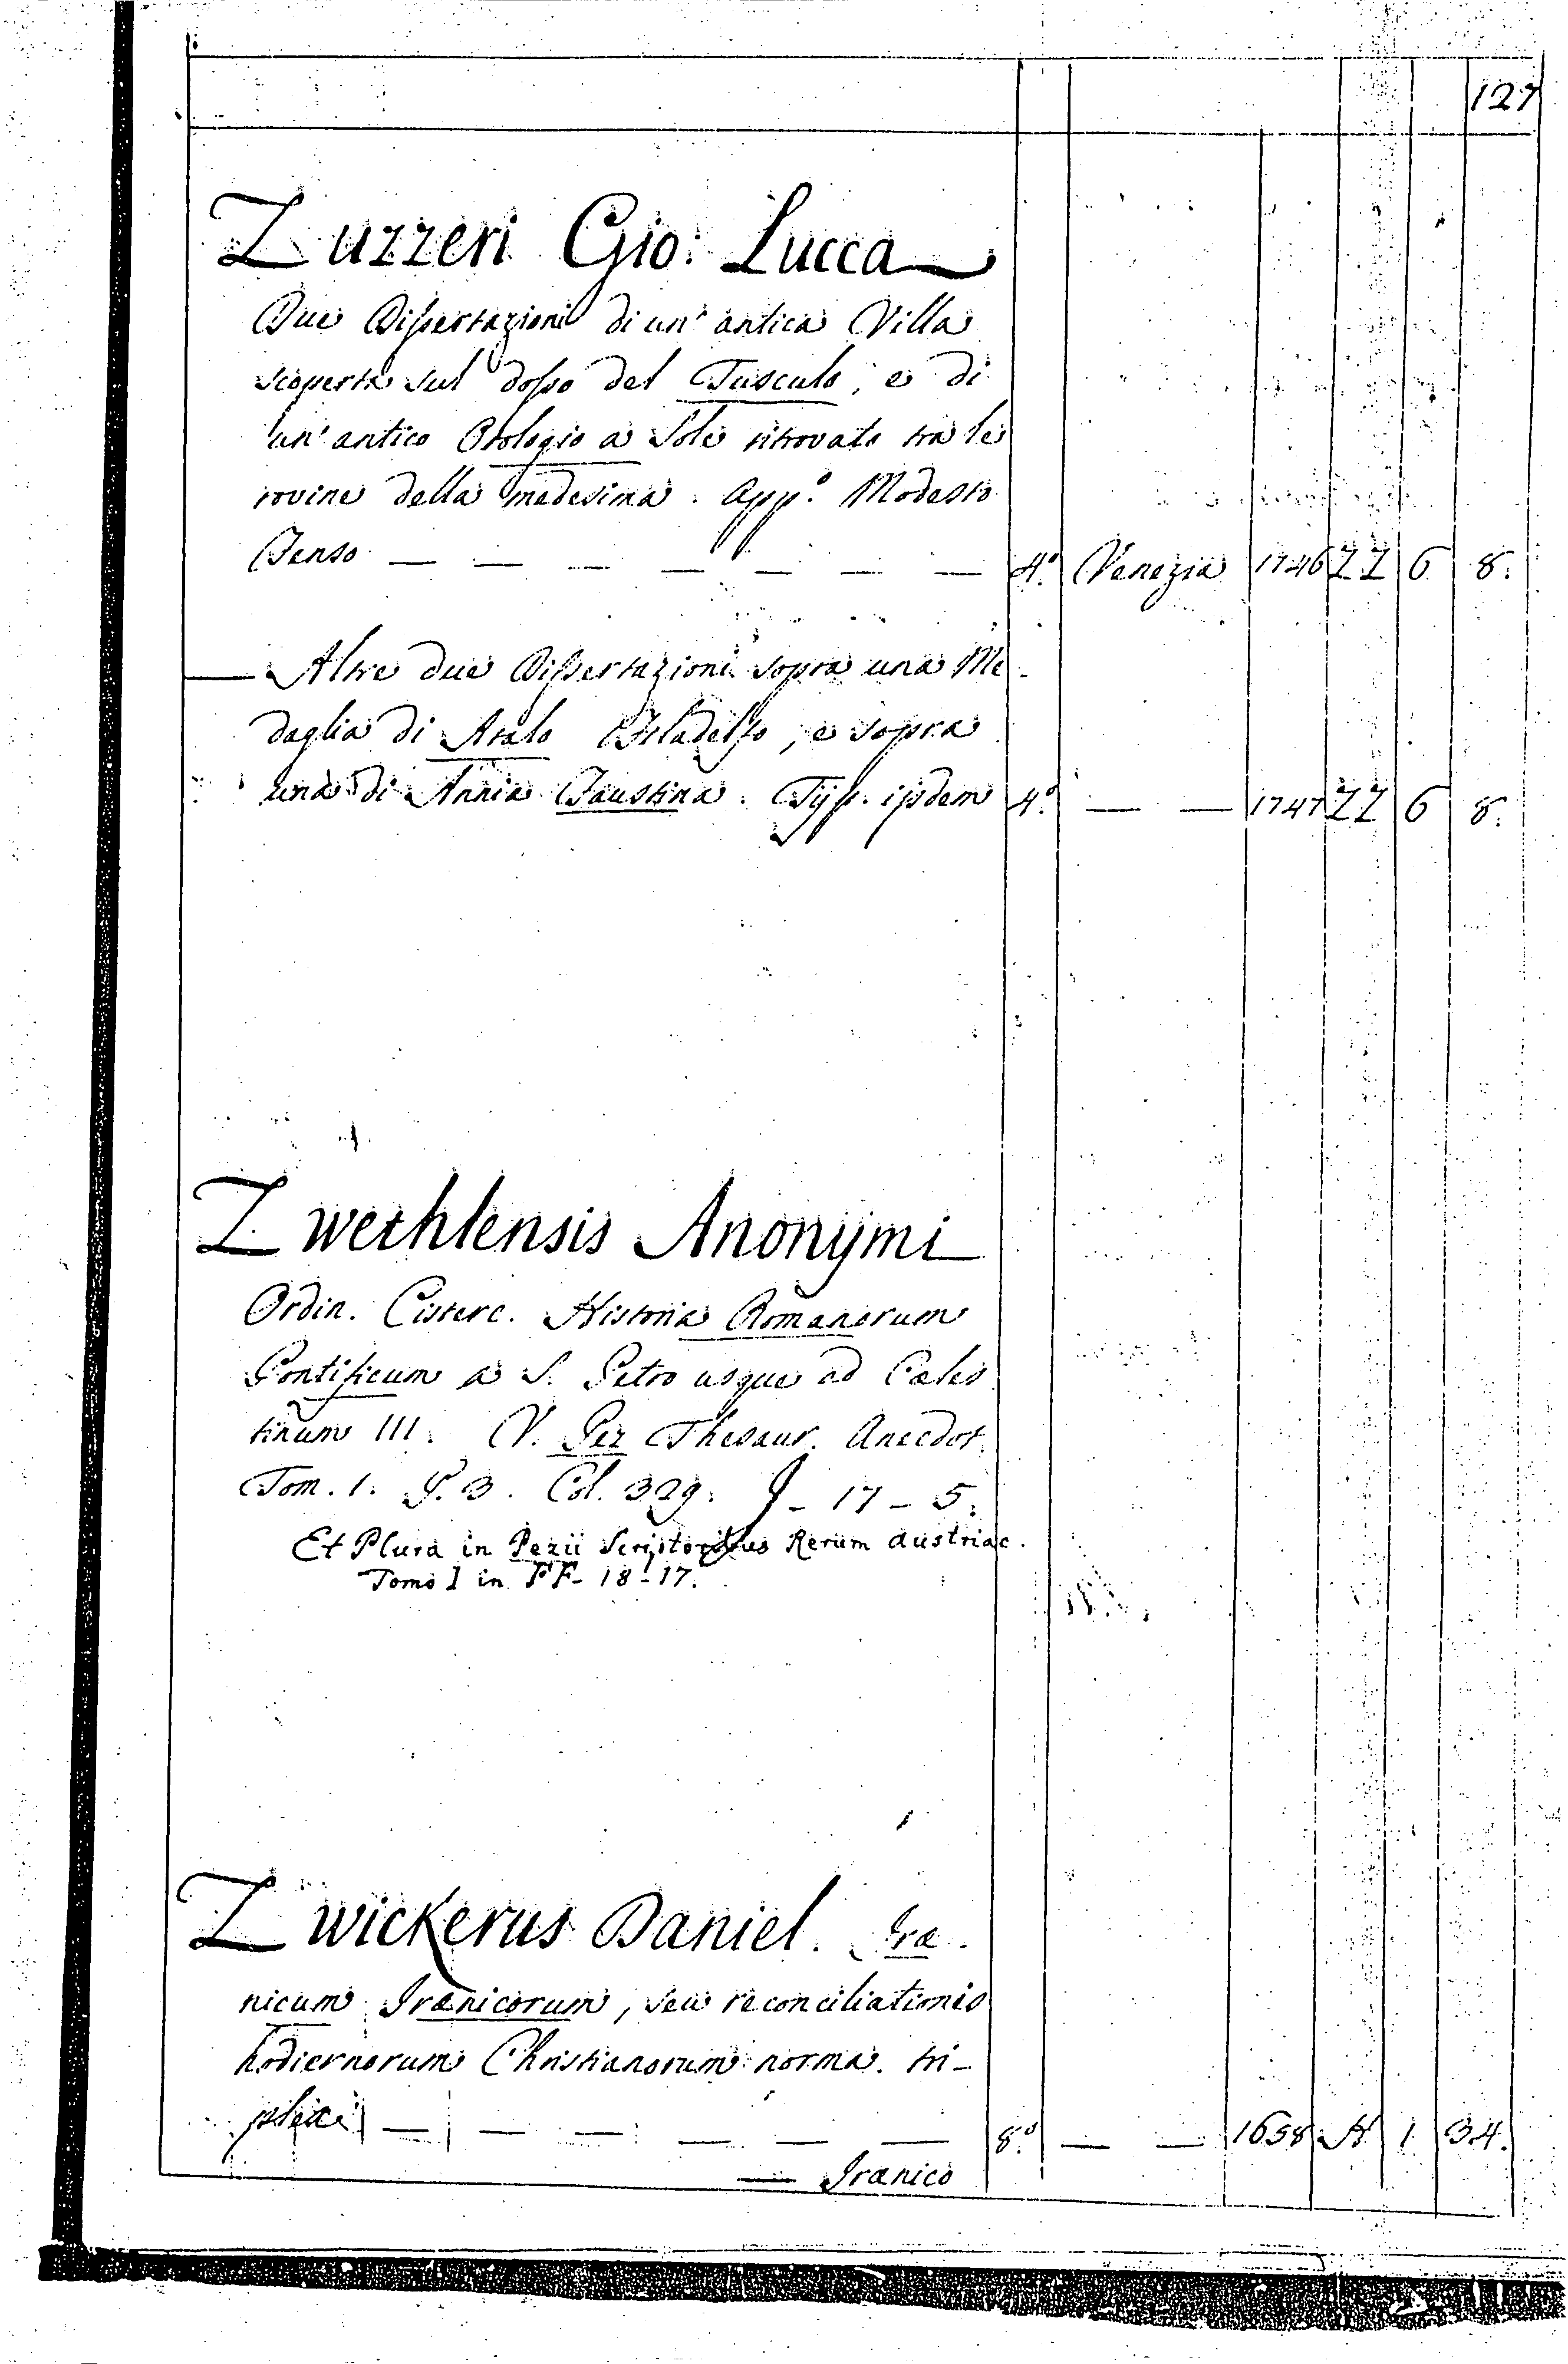 127
Zuzzeri Gio: Lucca
Due Dissertazioni di un' antica Villa
scoperta sul dosso del Tusculo, e di
un' antico Orologio a Sole ritrovato tra le
rovine della medesima. Appo. Modesto
Fenso — — — — — — — 4o. Venezia 1746 ZZ 6 8.
— Altre due Dissertazioni sopra una Me-
daglia di Atalo Filadelfo, e sopra
una di Annia Faustina. Typ. ijsdem 4o. — — 1747 ZZ 6 8.
Zwethlensis Anonymi
Ordin. Cisterc. Historia Romanorum
Pontificum a S. Petro usque ad Cæles
tinum III. V. Pez Thesaur. Anecdot.
Tom. 1. P. 3. Col. 329. J - 17 - 5.
Et Plura in Pezii Scriptoribus Rerum Austriac.
Tomo I in FF - 18 - 17.
Zwickerus Daniel. Iræ-
nicum Irænicorum, seu reconciliationis
hodiernorum Christianorum norma tri-
plex — — — — — — 8o. — — 1658 H 1 34.
— Irænico